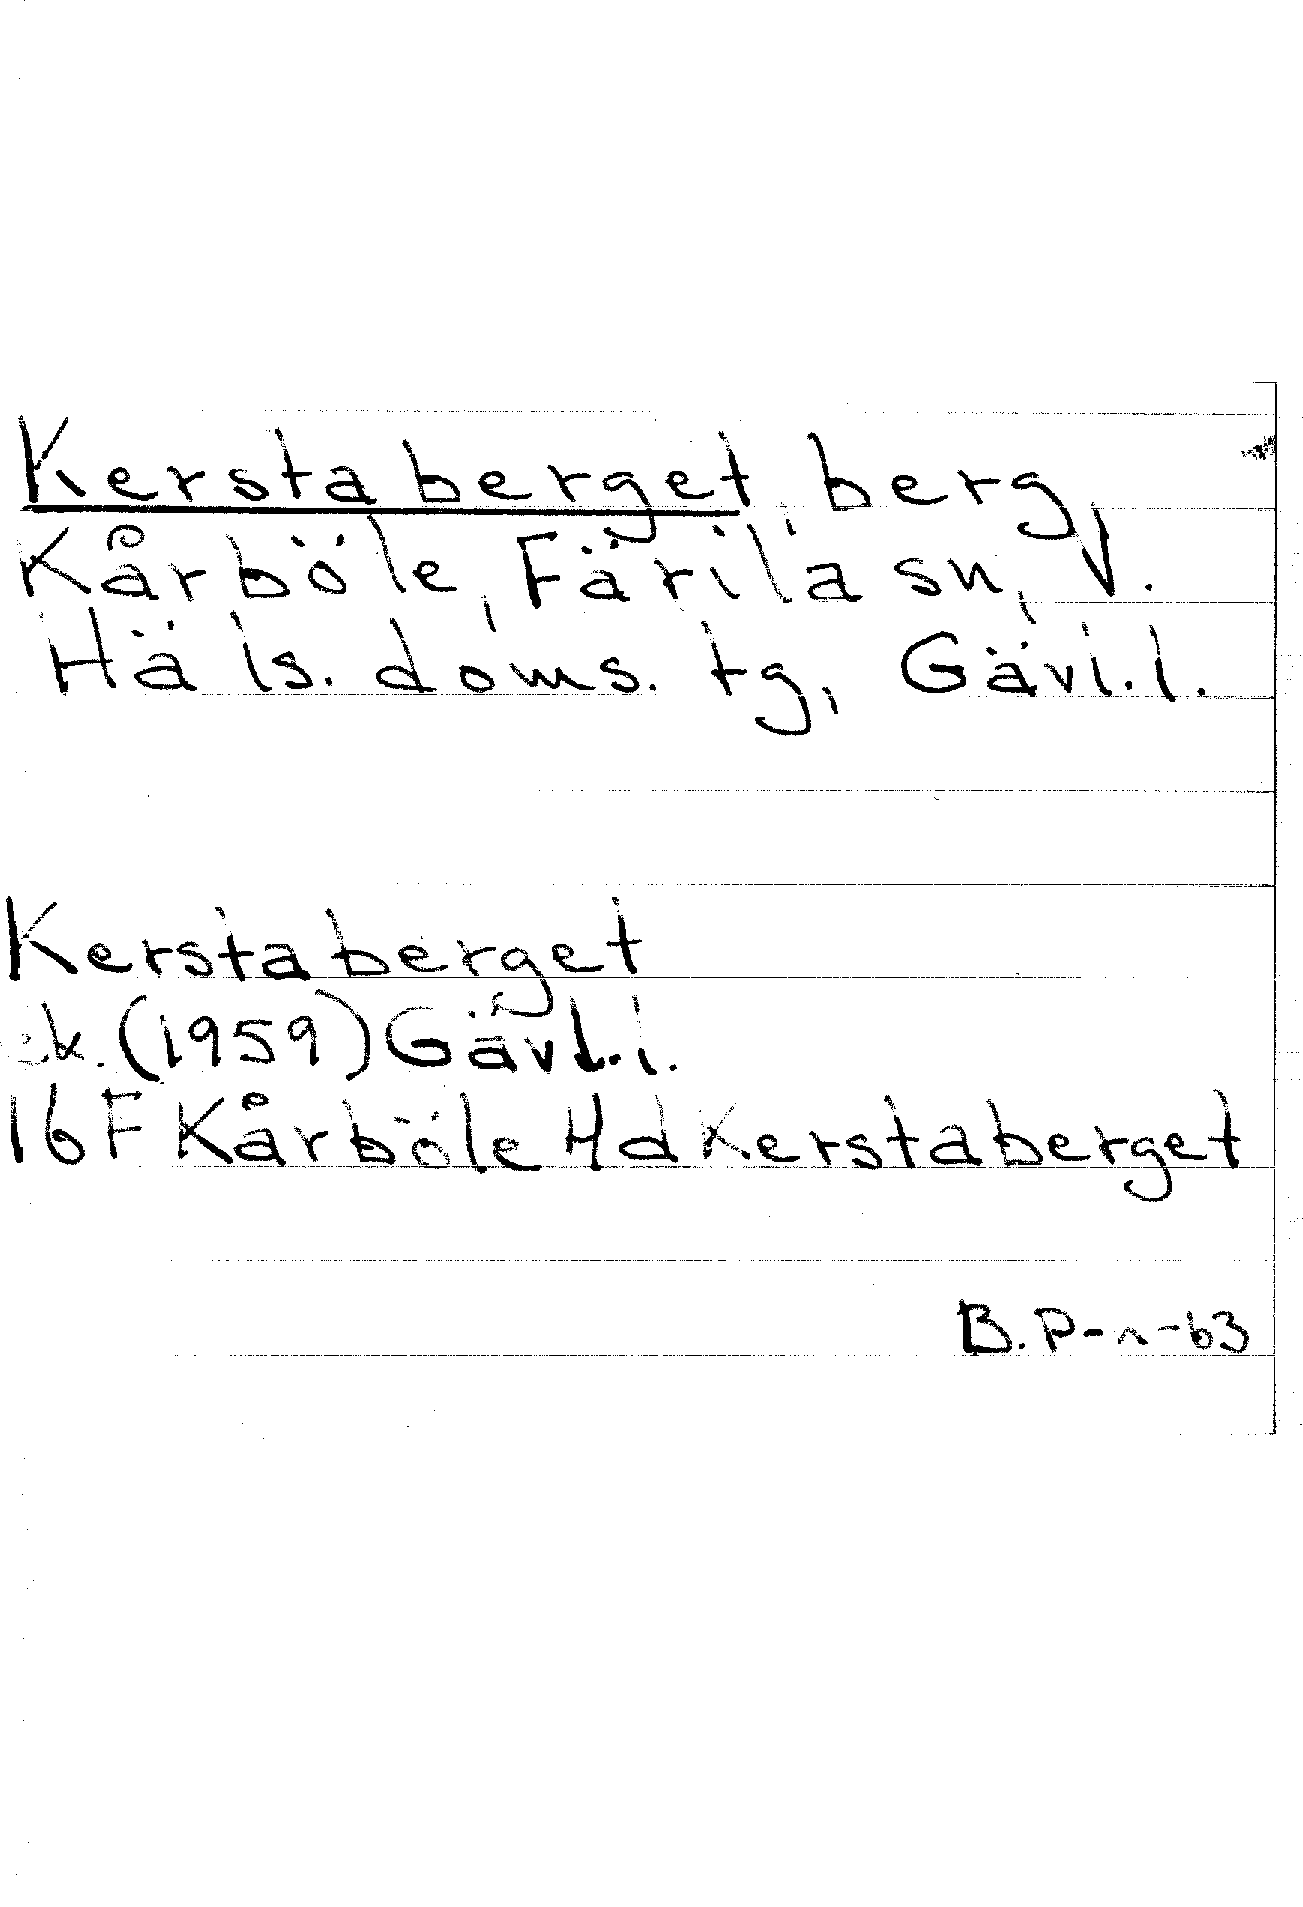 Kerstaberget, berg,
Kårböle, Färila sn, V.
Häls. doms. tg, Gävl. l.
Kerstaberget
ek. (1959) Gävl. l.
16F Kårböle 4d Kerstaberget
B. P-n-63